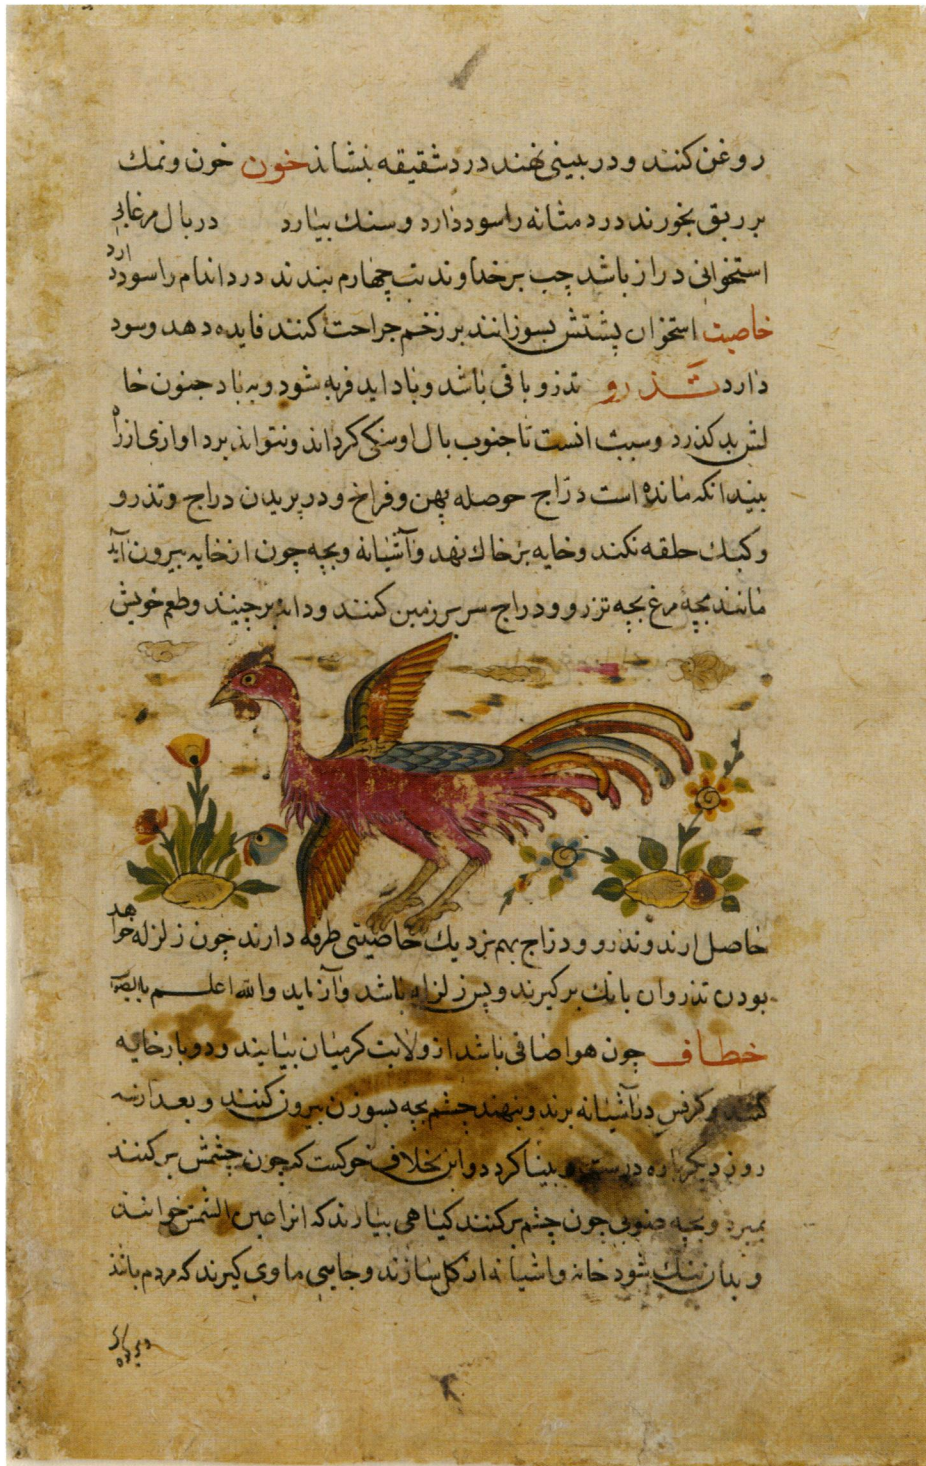 روغن کنند و در بینی نهند درد شقیقه بنشاند خون خون و نمك
بر ریق بخورند درد مثانه را سود دارد و سنك بیارد در بال مرغابی
استخوانی دراز باشد چب بر خداوند تب چهارم بندند درد اندام را سود دارد
خاصیت استخوان پشتش بسوزانند بر زخم جراحت کنند فایده دهد و سود
دارد تذرو تذرو باقی باشد و باد اید فربه شود و به باد جنون خا
لش بد کذرد و سبب انست تا جنوب بال او سنکی کرداند و نتواند برد اوازی از راه
بیند انکه مانده است دراج حوصله پهن و فراخ و در پریدن دراج و تذرو
و کبك حلقه نکند و خایه بر خاك نهد و آشیانه و بچه چون از خایه بیرون آید
مانند بچه مرغ بچه تزرو و دراج سر بر زمین کنند و دانه برچینند و طعم خویش
حاصل ارند و تذرو و دراج بهم نزدیك خاصیتی طرفه دارند چون زلزله خواهد
بودن تذروان بانك برکیرند و پس زلزله باشد و آز ماید والله اعلم بالصواب
خطاف چون هوا صافی باشد از ولایت کرمیان بیایند و دو بار خایه
کنند و کرفس در آشیانه برند و بنهند چشم بچه بسوزن بیرون کنند و بعد از سه
روز دیکر باره درست و بینا کردد و این بخلاف خوکست که چون چشمش برکنند
بمیرد و بچه چون چشم برکنند کیاهی بیارند که انرا عین الشمس خوانند
و بدان نیك شود خانه و اشیانه از کل سازند و جایی ماوی کیرند که مردم باشند